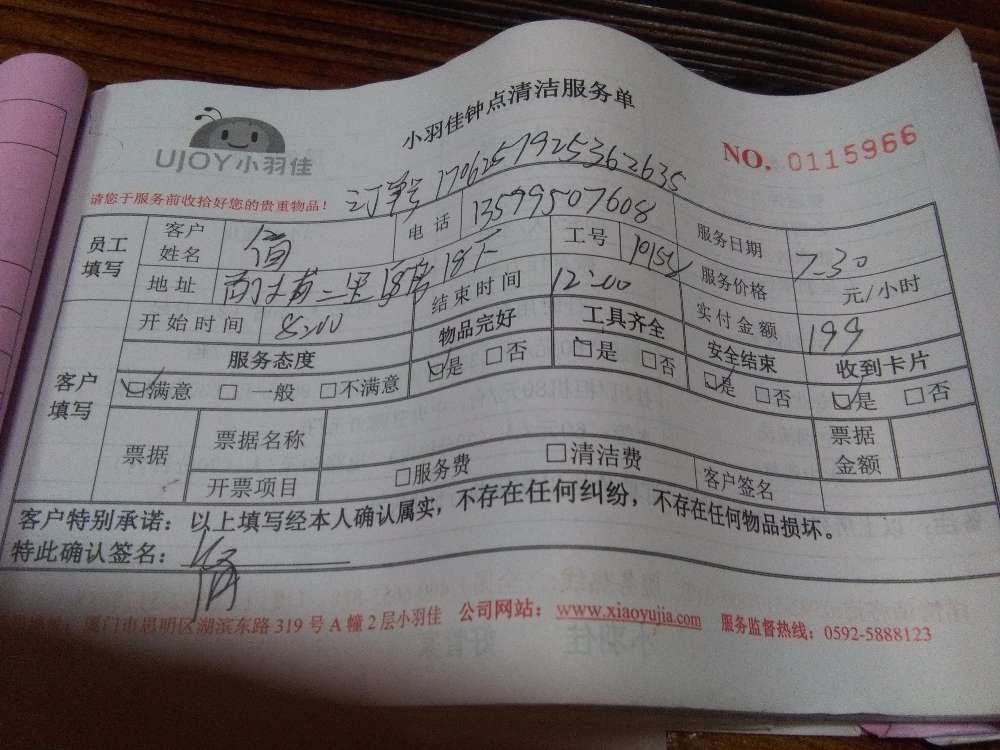 小羽佳钟点清洁服务单
UJOY小羽佳
NO. 0115966
订单号 1706257925362635
请您于服务前收拾好您的贵重物品！
员工填写 客户姓名 电话 13599507608 服务日期 7-30
地址 工号 服务价格 元/小时
开始时间 8:00 结束时间 12:00 实付金额 199
客户填写 服务态度 物品完好 工具齐全 安全结束 收到卡片
☑满意 □一般 □不满意 ☑是 □否 ☑是 □否 ☑是 □否 ☑是 □否
票据 票据名称 票据金额
开票项目 □服务费 □清洁费 客户签名
客户特别承诺：以上填写经本人确认属实，不存在任何纠纷，不存在任何物品损坏。
特此确认签名：
厦门市思明区湖滨东路319号A幢2层小羽佳 公司网站：www.xiaoyujia.com 服务监督热线：0592-5888123